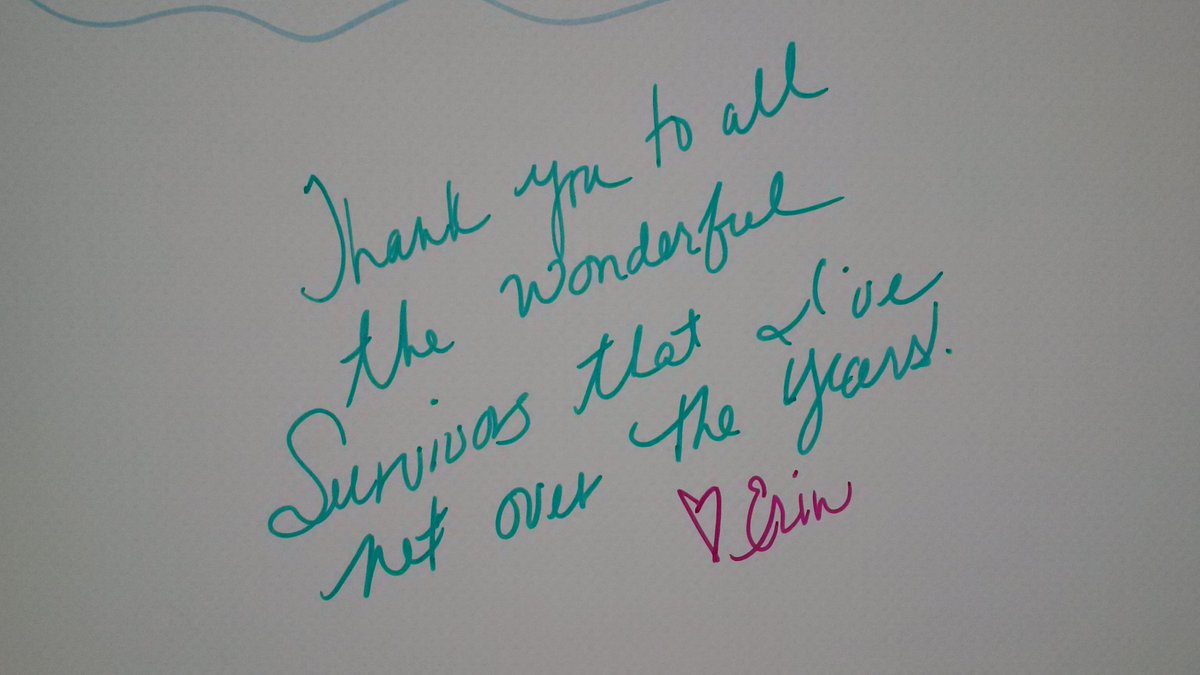 Thank you to all
the wonderful
Survivors that I've
met over the years.
♡ Erin